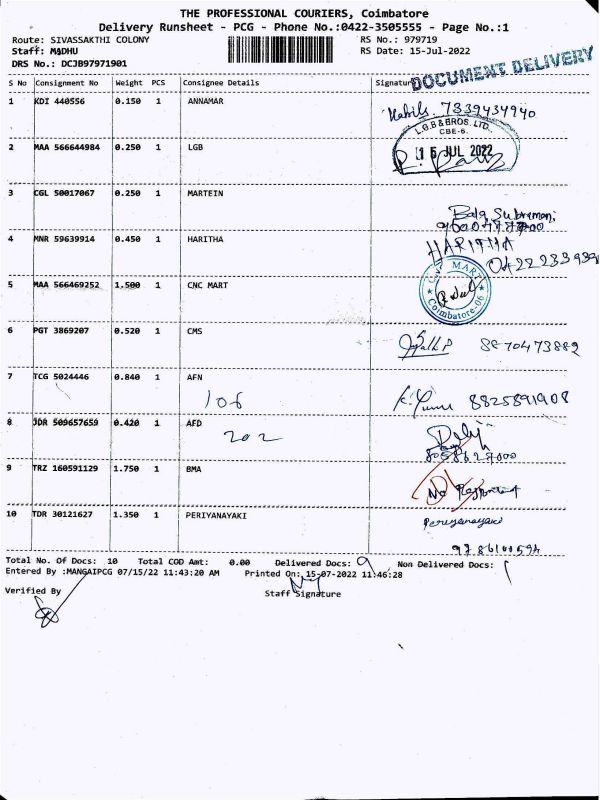 THE PROFESSIONAL COURIERS, Coimbatore
Delivery Runsheet - PCG - Phone No.:0422-3505555 - Page No.:1
Route: SIVASSAKTHI COLONY RS No.: 979719
Staff: MADHU RS Date: 15-Jul-2022
DRS No.: DCJB97971901
DOCUMENT DELIVERY
S No Consignment No Weight PCS Consignee Details Signature
1 KDI 440556 0.150 1 ANNAMAR
7339434940
2 MAA 566644984 0.250 1 LGB
L.G.B & BROS. LTD.,
CBE-6.
15 JUL 2022
3 CGL 50017067 0.250 1 MARTEIN
Bala Subramani
4 MNR 59639914 0.450 1 HARITHA
HARITHA
0422233939
5 MAA 566469252 1.500 1 CNC MART
MART
Coimbatore-06
6 PGT 3869207 0.520 1 CMS
8870473882
7 TCG 5024446 0.840 1 AFN
106
8825891908
8 JDR 509657659 0.420 1 AFD
202
8058627000
9 TRZ 160591129 1.750 1 BMA
No
10 TDR 30121627 1.350 1 PERIYANAYAKI
Periyanayaki
9786100594
Total No. Of Docs: 10 Total COD Amt: 0.00 Delivered Docs: 9 Non Delivered Docs: 1
Entered By :MANGAIPCG 07/15/22 11:43:20 AM Printed On: 15-07-2022 11:46:28
Verified By Staff Signature